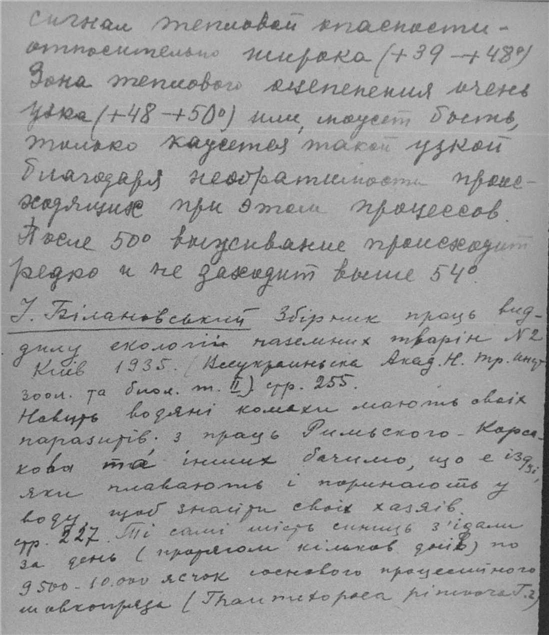 сигнал тепловой опасности -
относительно широка (+39 – +48°)
Зона теплового оцепенения очень
узка (+48 – +50°) или, может быть,
только кажется такой узкой
благодаря необратимости проис-
ходящих при этом процессов.
После 50° выживание происходит
редко и не заходит выше 54°.
І. Білановський Збірник праць від-
ділу екології наземних тварін N2
Київ 1935. (Всеукраиньска Акад. Н. тр. Инст
зоол. та биол. т. II) стр. 255.
Навіть водяні комахи мають своіх
паразитів. з праць Римського-Корса-
кова та інших бачимо, що є
які плавають і поринають у
воду, щоб знайти своіх хазяїв.
стр. 227. Ті самі шість синиць з'їдали
за день (протягом кількох днів) по
9500-10.000 яєчок соснового процесійного
шовкопряда (